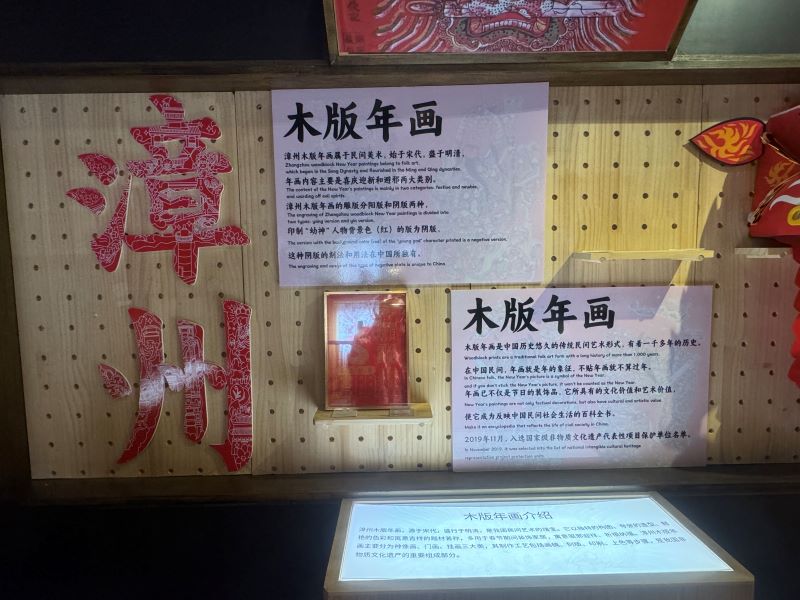 漳州
木版年画
漳州木版年画属于民间美术,始于宋代,盛于明清。
Zhangzhou woodblock New Year paintings belong to folk art,
which began in the Song Dynasty and flourished in the Ming and Qing dynasties.
年画内容主要是喜庆迎新和避邪两大类别。
The content of the New Year's paintings is mainly in two categories: festive and newbie,
and warding off evil spirits.
漳州木版年画的雕版分阳版和阴版两种,
The engraving of Zhangzhou woodblock New Year paintings is divided into
two types: yang version and yin version,
印制“幼神”人物背景色(红)的版为阴版,
The version with the background color (red) of the "young god" character printed is a negative version.
这种阴版的刻法和用法在中国所独有。
The engraving and usage of this type of negative plate is unique to China.
木版年画
木板年画是中国历史悠久的传统民间艺术形式,有着一千多年的历史。
Woodblock prints are a traditional folk art form with a long history of more than 1,000 years.
在中国民间,年画就是年的象征,不贴年画就不算过年。
In Chinese folk, the New Year's picture is a symbol of the New Year,
and if you don't stick the New Year's picture, it won't be counted as the New Year.
年画已不仅是节日的装饰品,它所具有的文化价值和艺术价值,
New Year's paintings are not only festival decorations, but also have cultural and artistic value.
使它成为反映中国民间社会生活的百科全书。
Make it an encyclopedia that reflects the life of civil society in China.
2019年11月,入选国家级非物质文化遗产代表性项目保护单位名单。
In November 2019, it was selected into the list of national intangible cultural heritage
representative project protection units.
木版年画介绍
漳州木版年画,源于宋代,盛行于明清,是我国民间艺术的瑰宝。它以独特的构图、夸张的造型、鲜
艳的色彩和寓意吉祥的题材著称,多用于春节期间装饰家居,寓意驱邪迎祥、祈福纳福。漳州木版年
画主要分为神像画、门画、挂画三大类,其制作工艺包括画稿、刻版、印刷、上色等步骤,是我国非
物质文化遗产的重要组成部分。